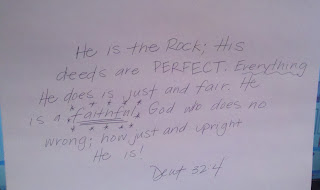 He is the Rock; His
deeds are PERFECT. Everything
He does is just and fair. He
is a faithful God who does no
wrong; how just and upright
He is!
Deut 32:4